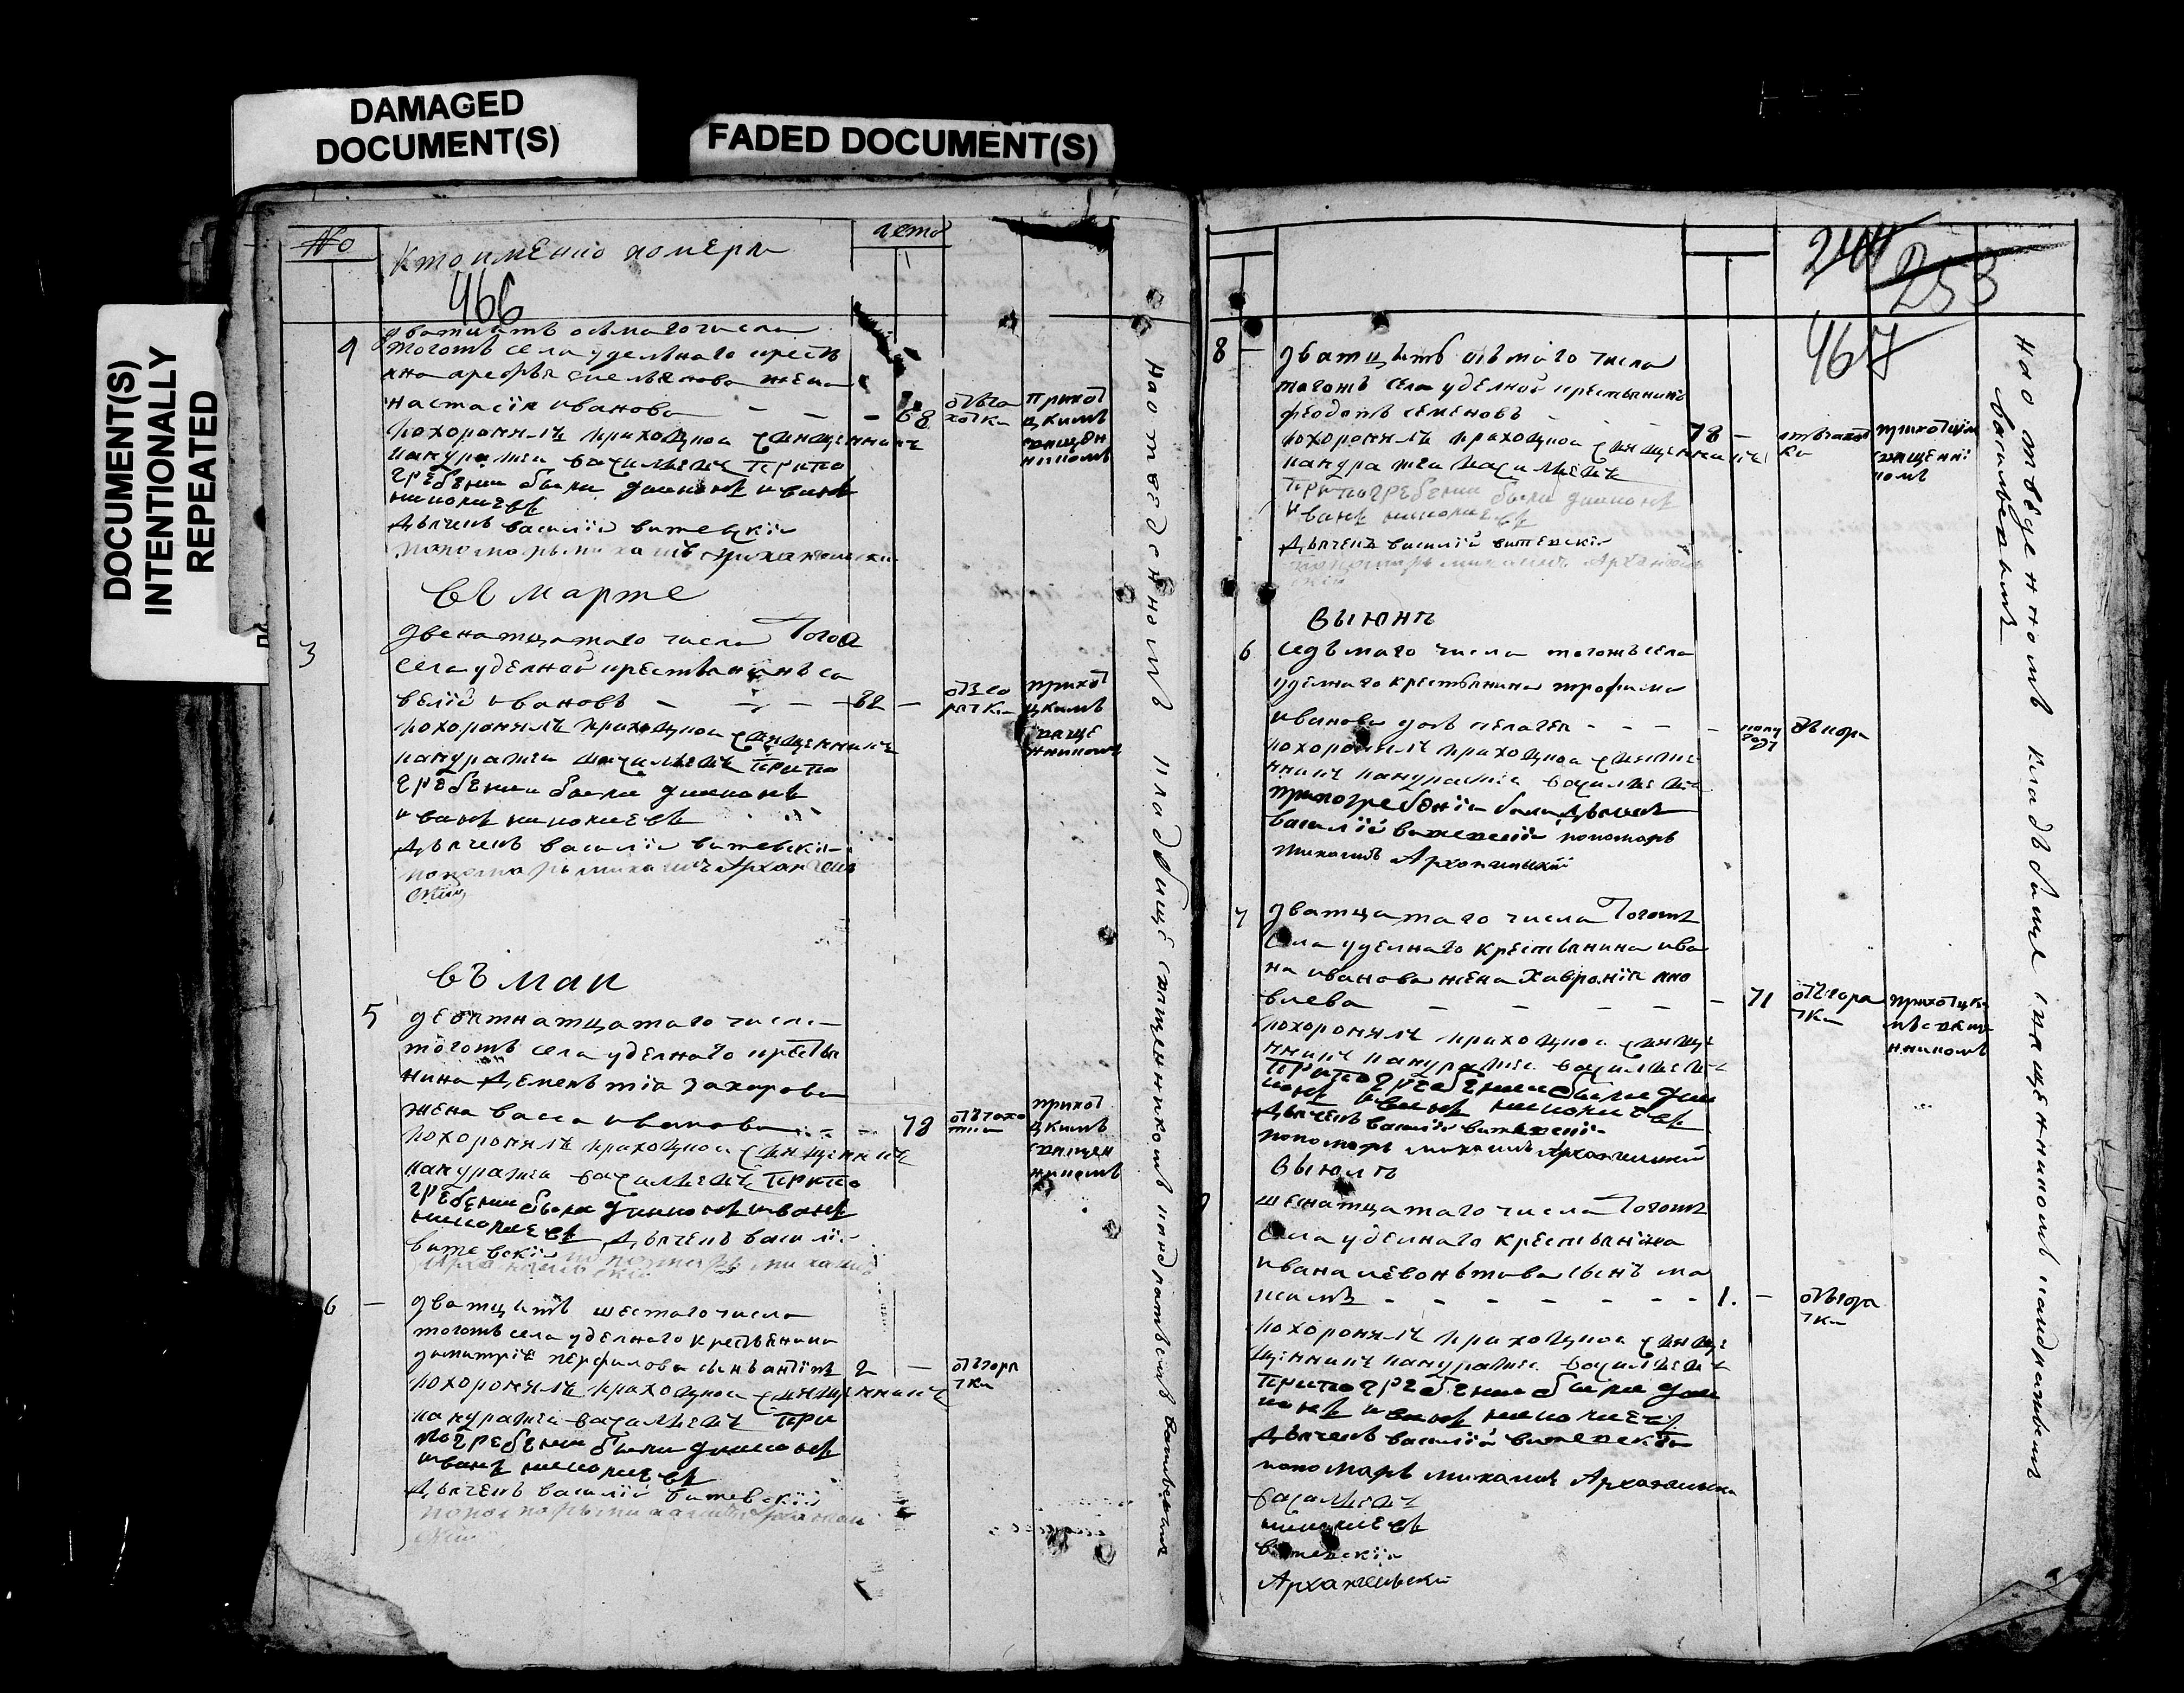 DAMAGED
DOCUMENT(S)
FADED DOCUMENT(S)
DOCUMENT(S)
INTENTIONALLY
REPEATED
№
Кто именно померъ
лета
466
4
дватцать осмаго числа
тогожъ села удельнаго крестья
нина арефья емельянова жена
настасія иванова - - - 68
отъ ча
хотки
приход
цкимъ
священ
никомъ
похоронялъ приходцкой священникъ
кандратей васильевъ при по
гребении были диаконъ иванъ
николаевъ
Дьячекъ василій витевскій
пономарь михаилъ архангельский
въ марте
3
двенатцатаго числа того
села уделной крестьянинъ са
велій ивановъ - - - - 82 -
отъ го
рячки
приход
цкимъ
свяще
нникомъ
похоронялъ приходцкой священникъ
кандратей васильевъ при по
гребении были диаконъ
иванъ николаевъ
Дьячекъ василій витевскій
пономарь михаилъ Архангель
ский
въ маи
5
девятнатцатаго числа
тогожъ села уделнаго крестья
нина Дементія захарова
жена васса иванова - - 78
отъ чахо
тки
приход
цкимъ
священ
никомъ
похоронялъ приходцкой священникъ
кандратей васильевъ при по
гребении были диаконъ иванъ
николаевъ Дьячекъ василій
витевскій пономарь михаилъ
архангельский
6 -
дватцать шестаго числа
тогожъ села уделнаго крестьянина
димитрія перфилова сынъ антіпъ 2 -
отъ горя
чки
похоронялъ приходцкой священникъ
кандратей васильевъ при
погребении были диаконъ
иванъ николаевъ
Дьячекъ василій витевскій
пономарь михаилъ Архангель
ский
на отведенномъ кладбище священникомъ кандратьемъ васильевымъ
244
253
467
8 -
дватцать осмаго числа
тогожъ села уделной крестьянинъ
феодотъ семеновъ - 78 -
отъ чахот
ки
приходцким
священни
комъ
похоронялъ приходцкой священникъ
кандратей васильевъ
при погребении были диаконъ
иванъ николаевъ
Дьячекъ василій витевский
пономарь михаилъ Архангель
ский
въ июнѣ
6
седьмаго числа тогожъ села
уделнаго крестьянина трофима
иванова дочь пелагея - - - -
полу
года
отъ кори
похоронялъ приходцкой священ
никъ кандратей васильевъ
при погребеніи были Дьячекъ
василій витевский пономарь
михаилъ Архангельский
7
дватцатаго числа тогожъ
села уделнаго крестьянина ива
на иванова жена Хавронія яко
влева - - - - - 71
отъ горя
чки
приходцки
мъ свяще
нникомъ
похоронялъ приходцкой священ
никъ кандратей васильевъ
при погребении были диа
конъ иванъ николаевъ
Дьячекъ василій витевский
пономарь михаилъ Архангельский
въ июлѣ
шеснатцатаго числа тогожъ
села уделнаго крестьянина
ивана левонтьева сынъ ма
ксимъ - - - - - - 1. -
отъ горя
чки
похоронялъ приходцкой свя
щенникъ кандратей васильевъ
при погребении были диа
конъ иванъ николаевъ
Дьячекъ василій витевский
пономарь михаилъ Архангельски
васильевъ
николаевъ
витевскій
Архангельски
на отведенномъ кладбище священникомъ кандратьемъ
васильевымъ